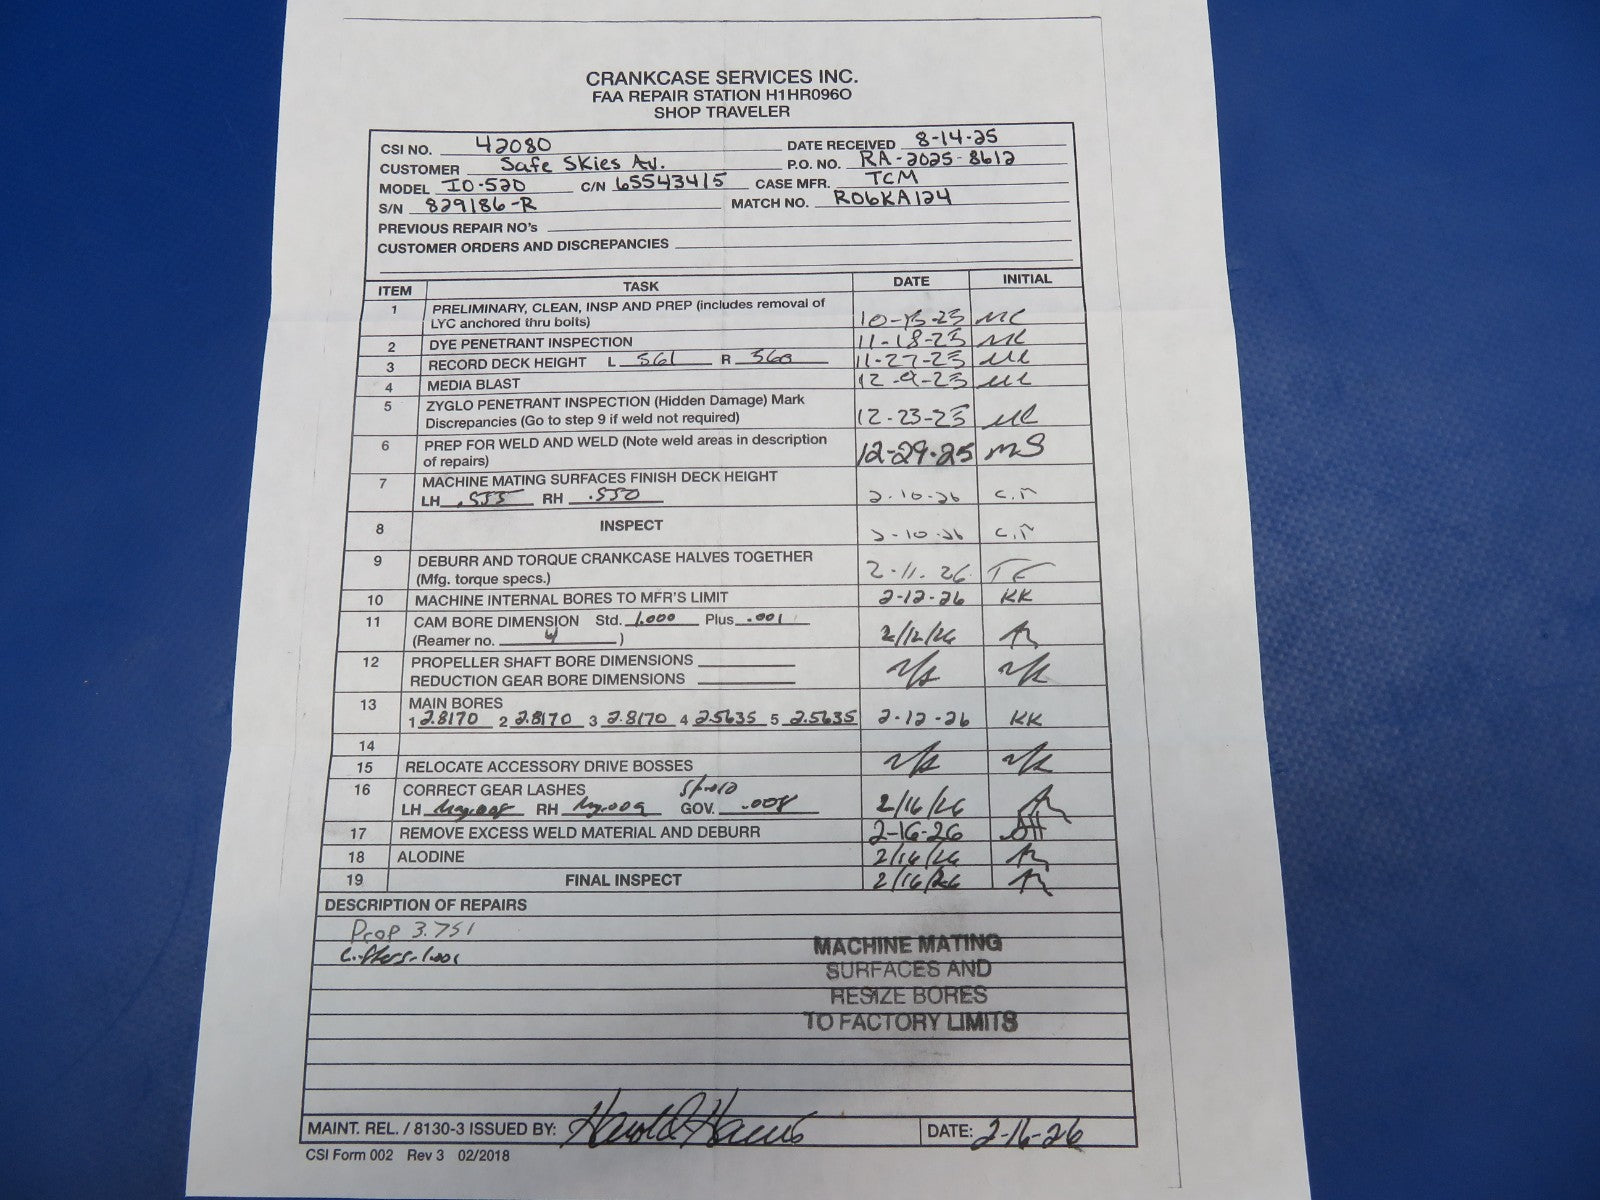 CRANKCASE SERVICES INC.
FAA REPAIR STATION H1HR096O
SHOP TRAVELER
CSI NO. 42080 DATE RECEIVED 8-14-25
CUSTOMER Safe Skies Av. P.O. NO. RA-2025-8612
MODEL IO-520 C/N 65543415 CASE MFR. TCM
S/N 829186-R MATCH NO. R06KA124
PREVIOUS REPAIR NO's
CUSTOMER ORDERS AND DISCREPANCIES
ITEM TASK DATE INITIAL
1 PRELIMINARY, CLEAN, INSP AND PREP (includes removal of
LYC anchored thru bolts) MC
2 DYE PENETRANT INSPECTION 11-18-25 MC
3 RECORD DECK HEIGHT L .561 R .560 11-27-25 MC
4 MEDIA BLAST 12-9-25 MC
5 ZYGLO PENETRANT INSPECTION (Hidden Damage) Mark
Discrepancies (Go to step 9 if weld not required) 12-23-25 MC
6 PREP FOR WELD AND WELD (Note weld areas in description
of repairs) 12-29-25 MS
7 MACHINE MATING SURFACES FINISH DECK HEIGHT
LH .555 RH .550 2-10-26
8 INSPECT 2-10-26
9 DEBURR AND TORQUE CRANKCASE HALVES TOGETHER
(Mfg. torque specs.) 2-11-26
10 MACHINE INTERNAL BORES TO MFR'S LIMIT 2-12-26 KK
11 CAM BORE DIMENSION Std. 1.000 Plus .001
(Reamer no. 4 ) 2/12/26
12 PROPELLER SHAFT BORE DIMENSIONS
REDUCTION GEAR BORE DIMENSIONS
13 MAIN BORES
1 2.8170 2 2.8170 3 2.8170 4 2.5635 5 2.5635 2-12-26 KK
14
15 RELOCATE ACCESSORY DRIVE BOSSES
16 CORRECT GEAR LASHES
LH RH GOV. .008 2/16/26
17 REMOVE EXCESS WELD MATERIAL AND DEBURR 2-16-26
18 ALODINE 2/16/26
19 FINAL INSPECT 2/16/26
DESCRIPTION OF REPAIRS
Prop 3.751
MACHINE MATING
SURFACES AND
RESIZE BORES
TO FACTORY LIMITS
MAINT. REL. / 8130-3 ISSUED BY: Harold DATE: 2-16-26
CSI Form 002 Rev 3 02/2018